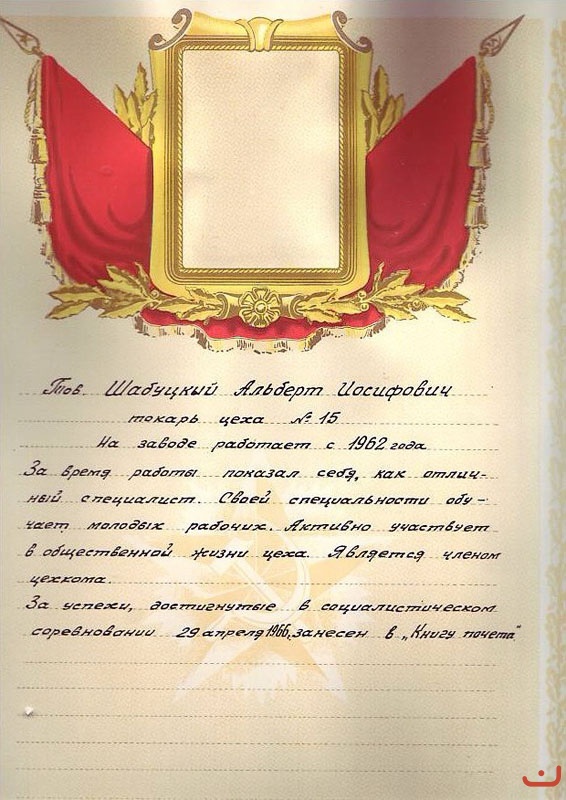 Тов. Шабуцкий Альберт Иосифович
токарь цеха № 15
На заводе работает с 1962 года
За время работы показал себя, как отлич-
ный специалист. Своей специальности обу-
чает молодых рабочих. Активно участвует
в общественной жизни цеха. Является членом
цехкома.
За успехи, достигнутые в социалистическом
соревновании 29 апреля 1966, занесен в „Книгу почета"